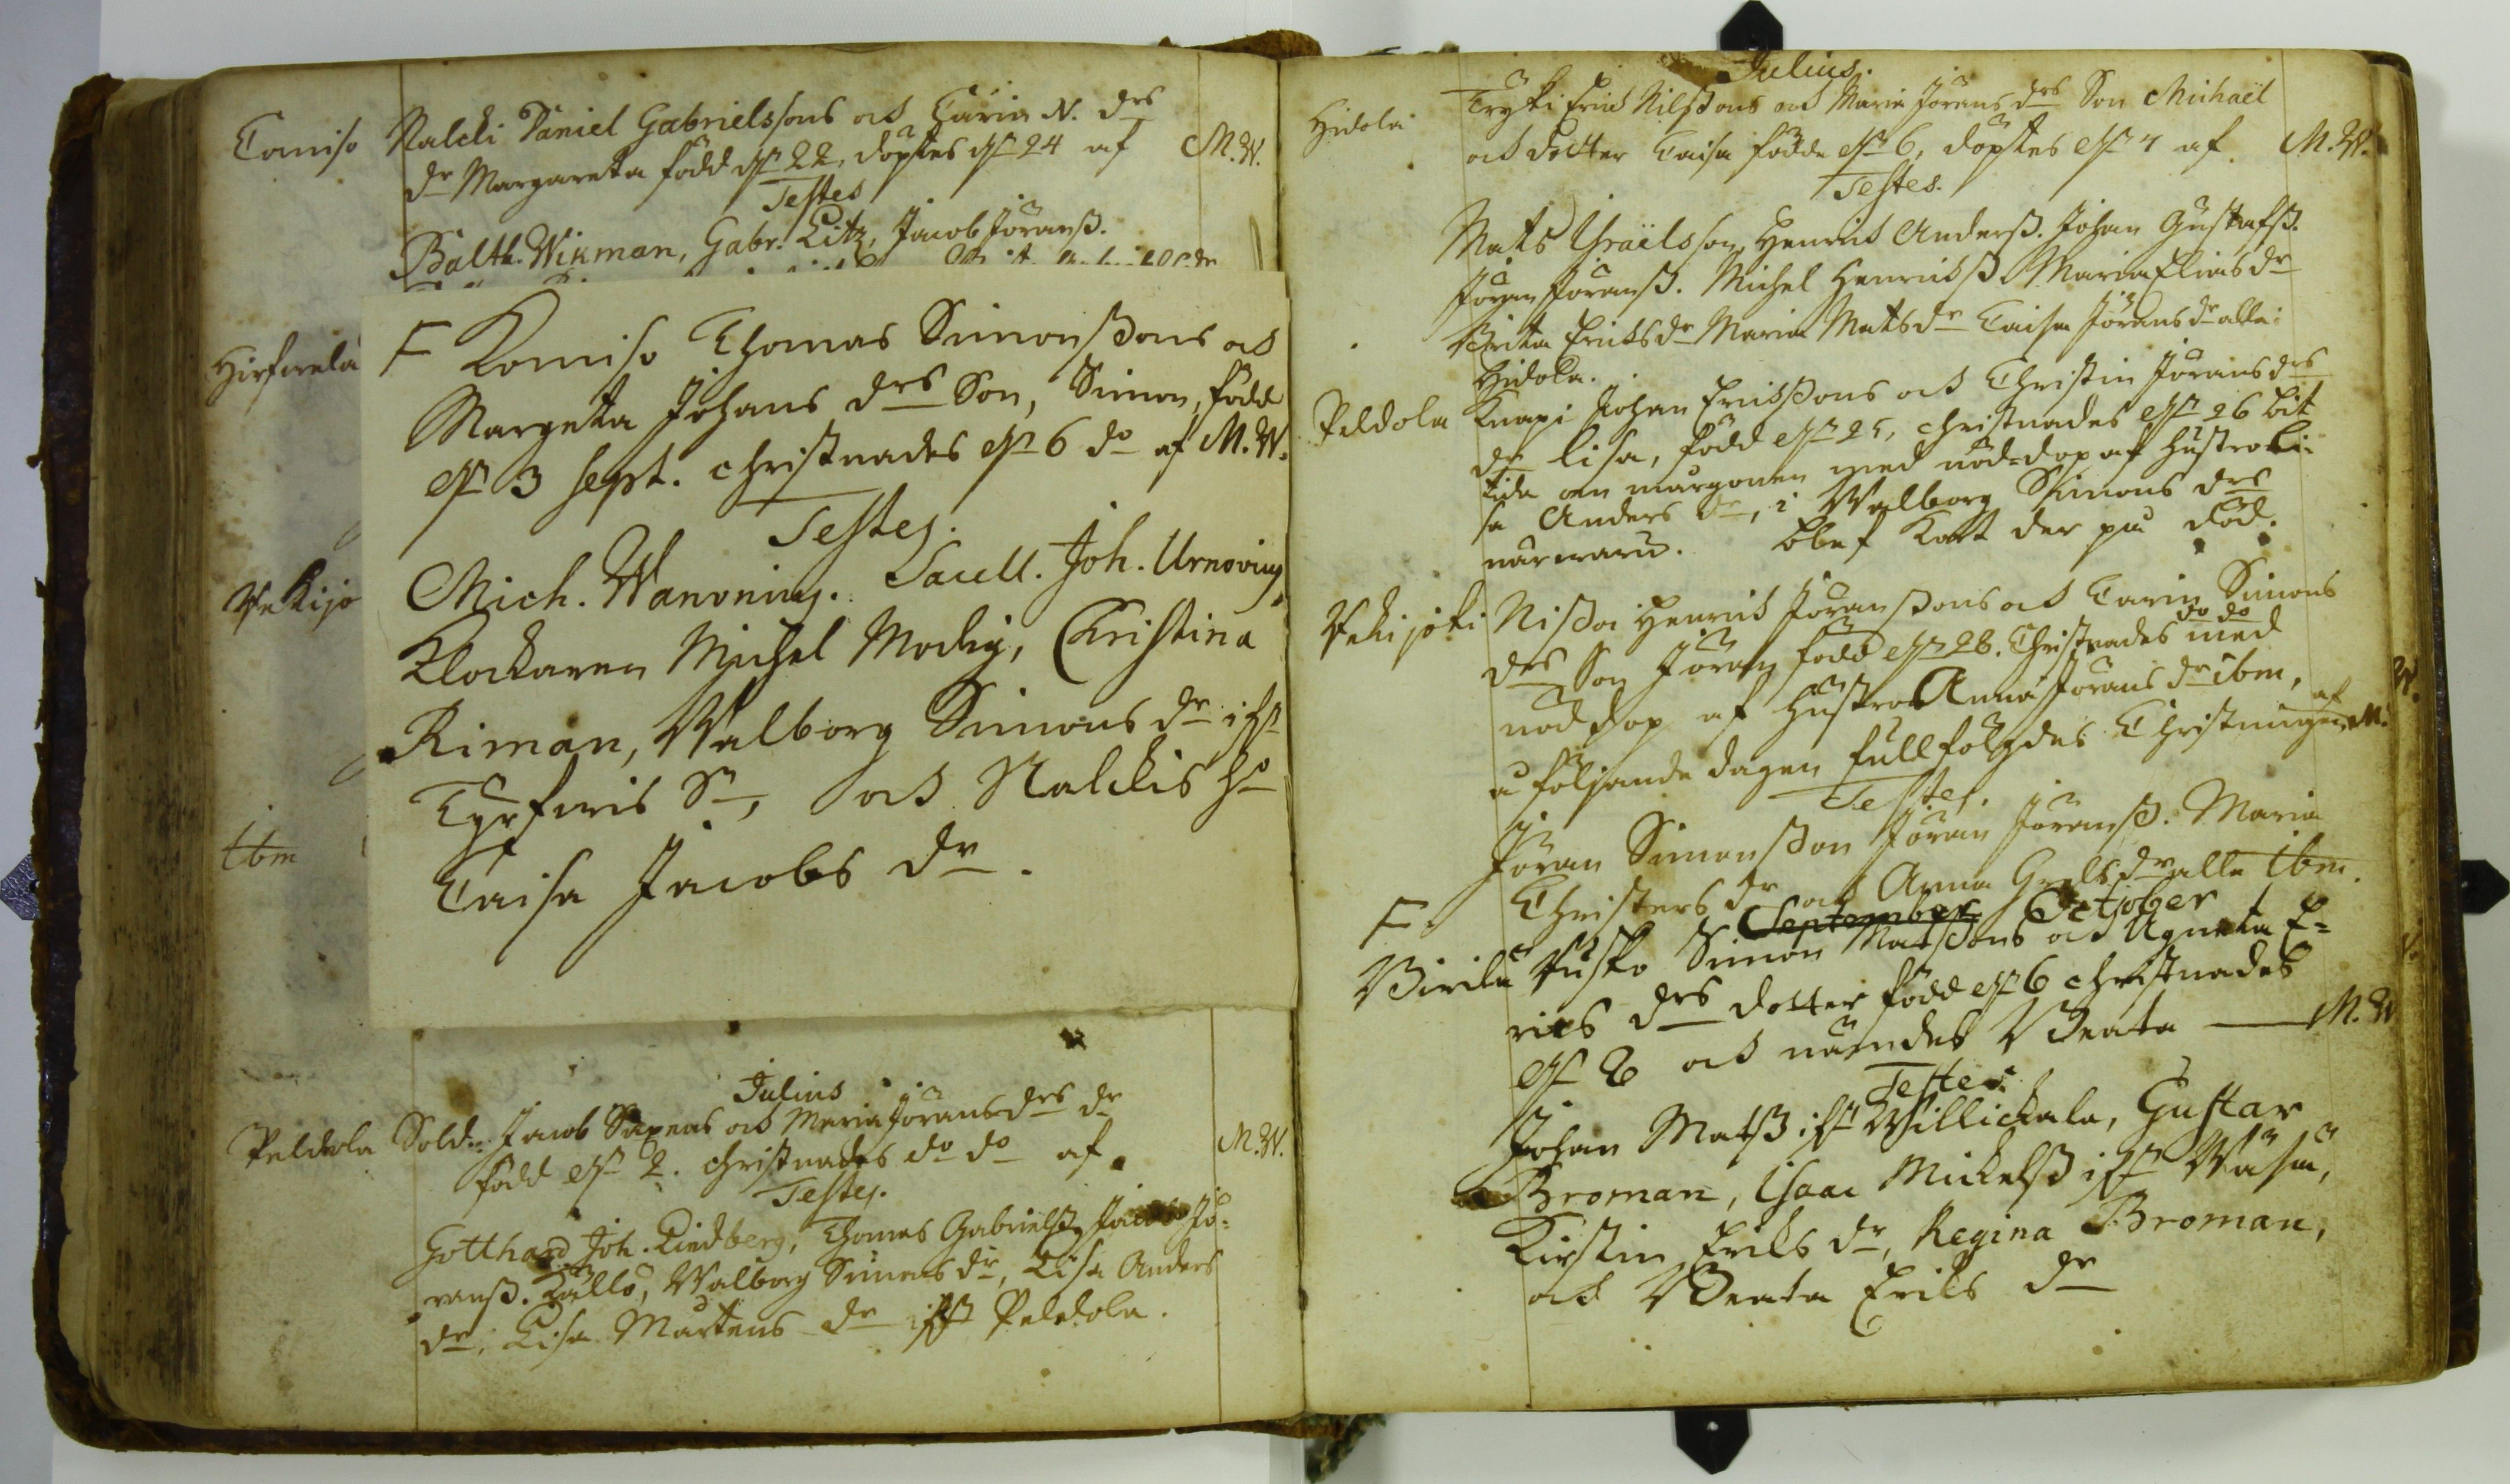 Tomiso Nalcki Daniel Gabrielssons ock Carin N. drs
dr Margareta född d. 22, döptes d. 24 af M.W.
Testes
Balth. Wikman, Gabr. Litz, Jacob Jöranss.
Hirfwela
Wekijo
ibm
F Komiso Thomas Simonssons ock
Margeta Johans drs Son, Simon, född
d. 3 Sept. christnades d. 6 do af M.W.
Testes.
Mich. Wanoning. Sacell. Joh. Urnovius,
Klockaren Michel Modig, Christina
Riman, Walborg Simons dr
Sn, ock Nalckis
Caisa Jacobs dr.
Julius
Peldola Sold. Jacob ock Maria Jörans drs dr
född d. 2. christnades do do af M.W.
Testes.
Gotthard Joh. Lindberg, Thomas Gabrielss, Jacob Jö-
ranss. Källo, Walborg Simons dr, Lisa Anders
dr, Lisa Martens dr Peldola.
Julius.
Hidola Tryki Erick Nilssons ock Maria Jörans drs Son Michaël
ock dotter Caisa födde d. 6, döptes d. 7 af M.W.
Testes.
Mats Israëlsson, Henrick Anderss. Johan Gustafss.
Jöran Jöranss. Michel Henrickss Maria Elias dr
Brita Ericks dr Maria Mats dr Caisa Jörans dr alla i
Hidola.
Peldola Knapi Johan Erickssons ock Christin Jörans drs
dr Lisa, född d. 25, christnades d. 26 bit-
tida om morgonen med nöd-dop af Hustro Li-
sa Anders dr, i Walborg Simons drs
närwaru. blef kort der på död.
Wekijoki Nissoi Henrick Jöranssons ock Carin Simons
drs Son Jöran född d. 28. Christnades do do med
nöddop af Hustro Anna Jörans dr ibm,
å följande dagen fullföljdes Christningen af M. W.
Testes.
Jöran Simonsson Jöran Jöranss. Maria
Christers dr ock Anna Grels dr alla ibm.
F. September October
Birilä Simon Matssons ock Agneta E-
rics drs dotter född d. 6 christnades
d. 8 ock nämndes Beata — M.W
Testes.
Johan Matss Willickala, Gustav
Broman, Isaac Mickelss
Kirstin Eriks dr, Regina Broman,
ock Beata Eriks dr